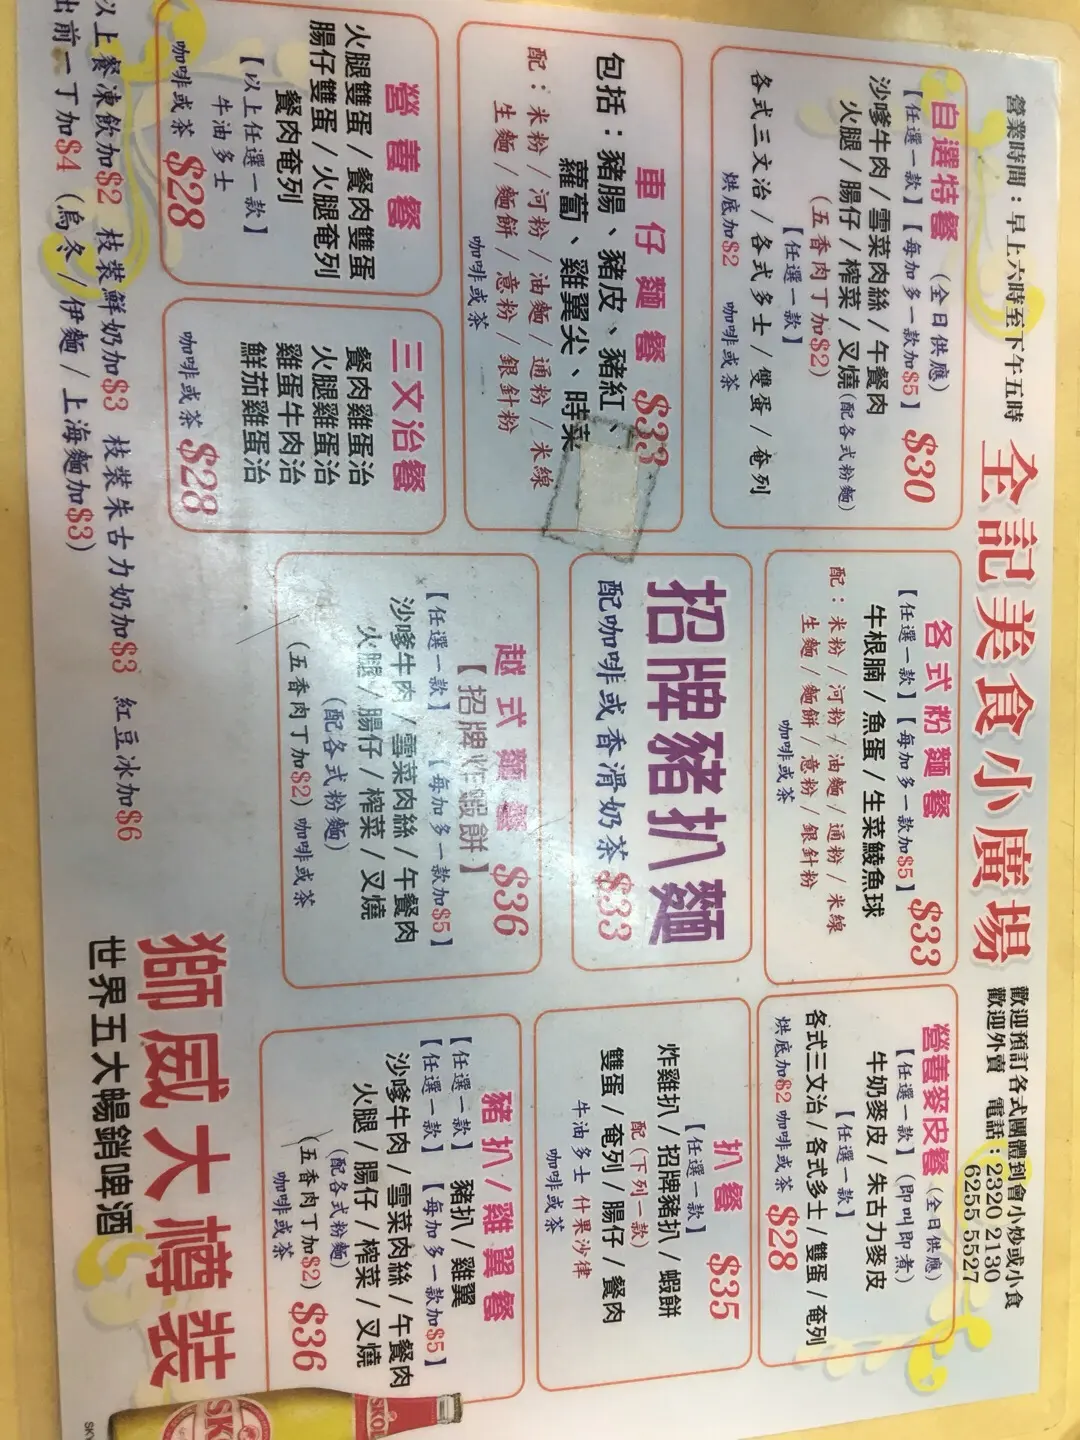 營業時間：早上六時至下午五時
全記美食小廣場
歡迎預訂各式團體到會小炒或小食
歡迎外賣 電話：2320 2130
6255 5527
自選特餐 (全日供應)
【任選一款】【每加多一款加$5】 $30
沙嗲牛肉/雪菜肉絲/午餐肉
火腿/腸仔/榨菜/叉燒(配各式粉麵)
(五香肉丁加$2)
【任選一款】
各式三文治/各式多士/雙蛋/奄列
烘底加$2 咖啡或茶
各式粉麵餐
【任選一款】【每加多一款加$5】 $33
牛根腩/魚蛋/生菜鯪魚球
配：米粉/河粉/油麵/通粉/米線
生麵/麵餅/意粉/銀針粉
咖啡或茶
營養麥皮餐 (全日供應)
【任選一款】(即叫即煮)
牛奶麥皮/朱古力麥皮
【任選一款】
各式三文治/各式多士/雙蛋/奄列
烘底加$2 咖啡或茶 $28
車仔麵餐 $33
包括：豬腸、豬皮、豬紅、
蘿蔔、雞翼尖、時菜
配：米粉/河粉/油麵/通粉/米線
生麵/麵餅/意粉/銀針粉
咖啡或茶
招牌豬扒麵
配咖啡或香滑奶茶 $33
扒餐 $35
【任選一款】
炸雞扒/招牌豬扒/蝦餅
配(下列一款)
雙蛋/奄列/腸仔/餐肉
牛油多士 什果沙律
咖啡或茶
營養餐
火腿雙蛋/餐肉雙蛋
腸仔雙蛋/火腿奄列
餐肉奄列
【以上任選一款】
牛油多士
咖啡或茶 $28
三文治餐
餐肉雞蛋治
火腿雞蛋治
雞蛋牛肉治
鮮茄雞蛋治
咖啡或茶 $28
越式麵餐 $36
【招牌炸蝦餅】
【任選一款】【每加多一款加$5】
沙嗲牛肉/雪菜肉絲/午餐肉
火腿/腸仔/榨菜/叉燒
(配各式粉麵)
(五香肉丁加$2) 咖啡或茶
豬扒/雞翼餐
【任選一款】 豬扒/雞翼
【任選一款】【每加多一款加$5】
沙嗲牛肉/雪菜肉絲/午餐肉
火腿/腸仔/榨菜/叉燒
(配各式粉麵)
(五香肉丁加$2) $36
咖啡或茶
以上餐凍飲加$2 枝裝鮮奶加$3 枝裝朱古力奶加$3 紅豆冰加$6
出前一丁加$4 (烏冬/伊麵/上海麵加$3)
獅威大樽裝
世界五大暢銷啤酒